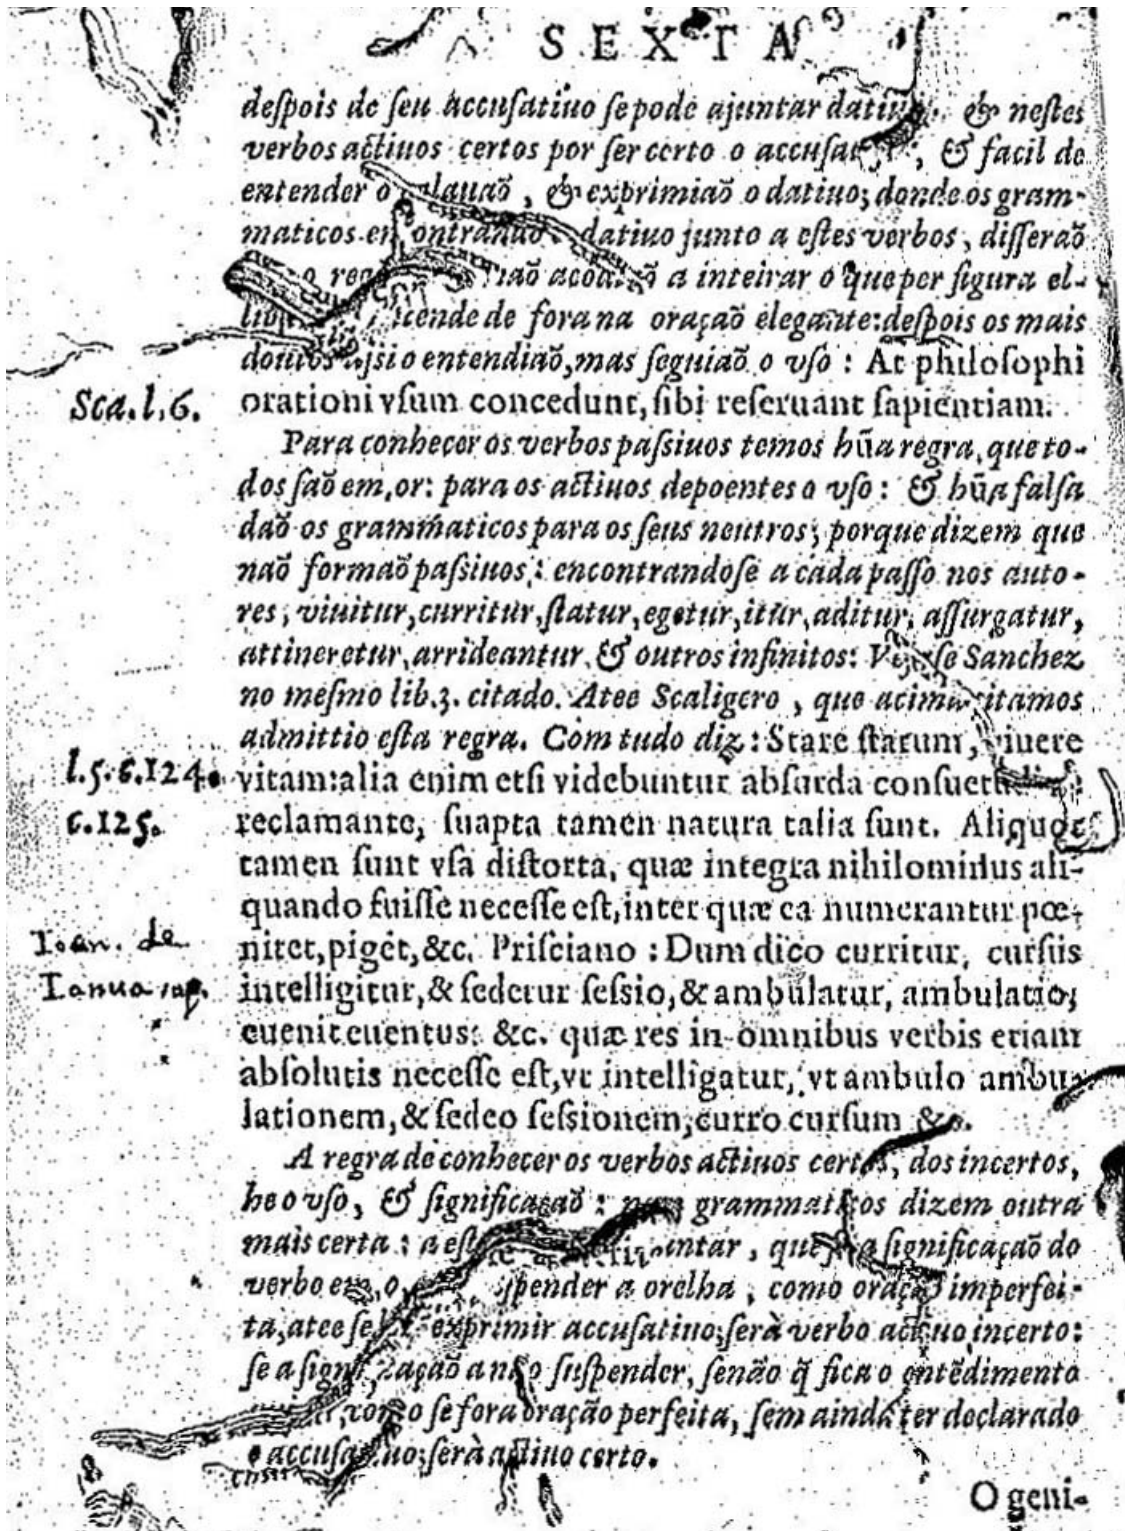 SEXTA
deſpois de ſeu accuſatiuo ſe pode ajuntar & neſtes
verbos actiuos certos por ſer certo o & facil de
entender o , & exprimiaõ o datiuo; donde os gram-
maticos datiuo junto a eſtes verbos, diſſeraõ
a inteirar o que per figura el-
de fora na oraçaõ elegante: deſpois os mais
o entendiaõ, mas ſeguiaõ o vſo : At philoſophi
Sca.l.6.
orationi vſum concedunt, ſibi reſeruant ſapientiam.
Para conhecer os verbos paſsiuos temos hũa regra, que to-
dos ſaõ em, or: para os actiuos depoentes o vſo : & hũa falſa
daõ os grammaticos para os ſeus neutros; porque dizem que
naõ formaõ paſsiuos: encontrandoſe a cada paſſo nos auto-
res, viuitur, curritur, ſtatur, egetur, itur, aditur, aſſurgatur,
attineretur, arrideantur, & outros infinitos: Sanchez
no meſmo lib.3. citado. Atee Scaligero, que acima citamos
admittio eſta regra. Com tudo diz: Stare ſtatum, viuere
l.5.c.124.
vitam: alia enim etſi videbuntur abſurda
c.125.
reclamante, ſuapta tamen natura talia ſunt. Aliquot
tamen ſunt vſa diſtorta, quæ integra nihilominus ali-
quando fuiſſe neceſſe eſt, inter quæ ea numerantur pœ-
Ioan. de
nitet, piget, &c. Priſciano : Dum dico curritur, curſus
Ianua
intelligitur, & ſedetur ſeſsio, & ambulatur, ambulatio;
euenit euentus: &c. quæ res in omnibus verbis etiam
abſolutis neceſſe eſt, vt intelligatur, vt ambulo ambu-
lationem, & ſedeo ſeſsionem, curro curſum &c.
A regra de conhecer os verbos actiuos certos, dos incertos,
he o vſo, & ſignificaçaõ : grammaticos dizem outra
mais certa : , que ſe a ſignificaçaõ do
verbo a orelha, como oraçaõ imperfei-
ta, atee ſe exprimir accuſatiuo; ſerà verbo actiuo incerto:
ſe a ſignificaçaõ a naõ ſuſpender, ſenaõ q̃ fica o entẽdimento
como ſe fora oraçaõ perfeita, ſem ainda ter declarado
o accuſatiuo; ſerà actiuo certo.
O geni-